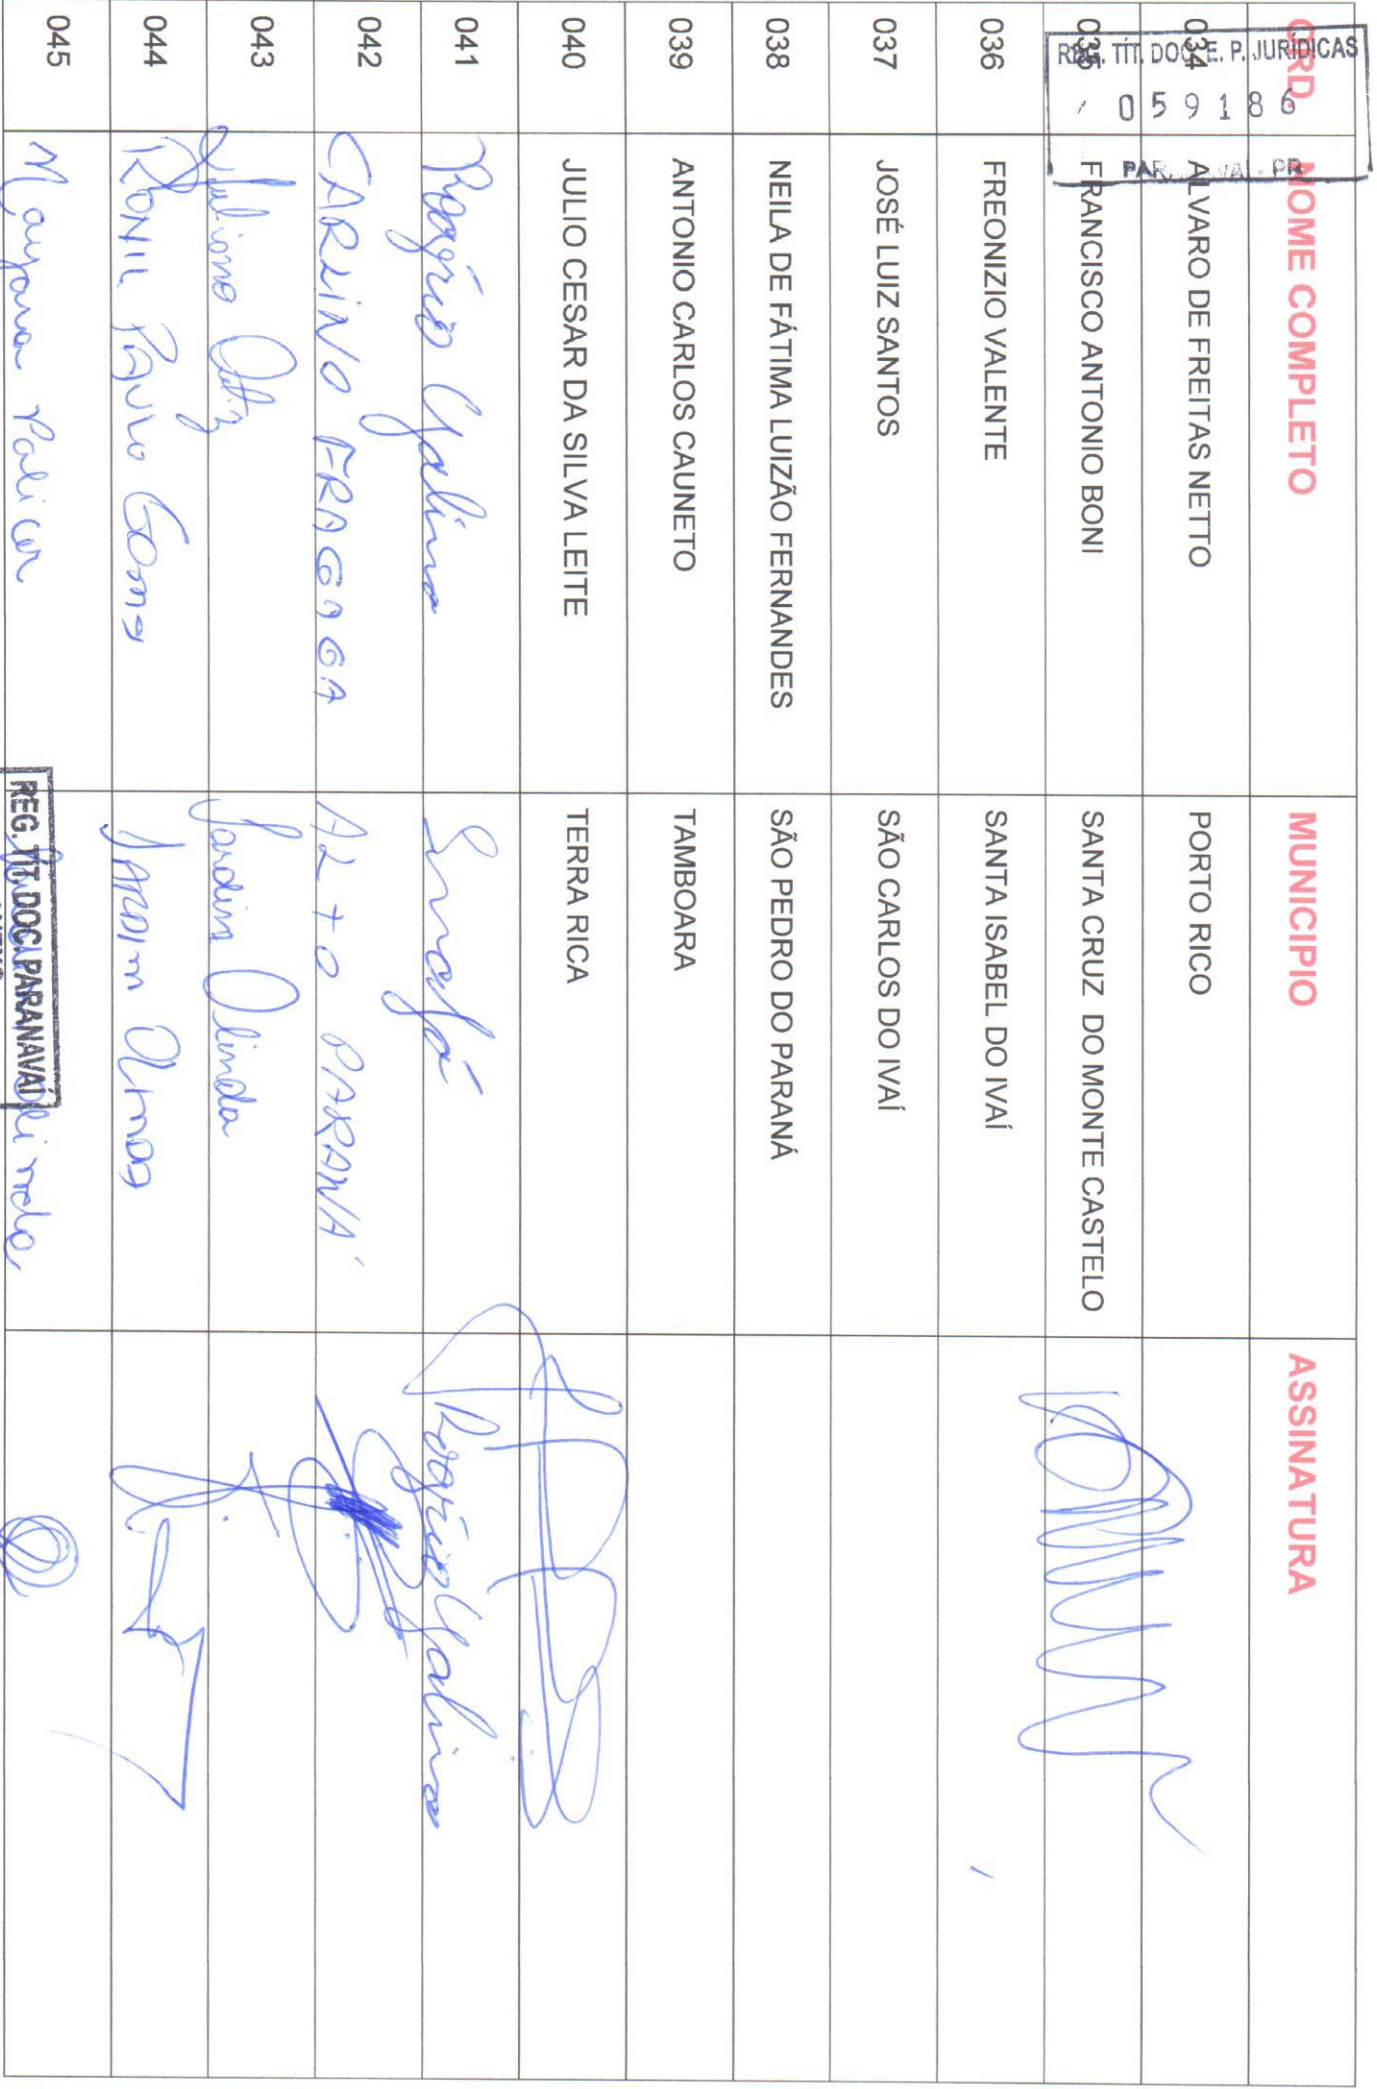 ORD. NOME COMPLETO MUNICIPIO ASSINATURA
REG. TÍT. DOC. E. P. JURÍDICAS
059186
PR
034 ALVARO DE FREITAS NETTO PORTO RICO
035 FRANCISCO ANTONIO BONI SANTA CRUZ DO MONTE CASTELO
036 FREONIZIO VALENTE SANTA ISABEL DO IVAÍ
037 JOSÉ LUIZ SANTOS SÃO CARLOS DO IVAÍ
038 NEILA DE FÁTIMA LUIZÃO FERNANDES SÃO PEDRO DO PARANÁ
039 ANTONIO CARLOS CAUNETO TAMBOARA
040 JULIO CESAR DA SILVA LEITE TERRA RICA
041 Rogério Galina Rogério Galina
042 CARLINO FRAGOGA ALTO PARANÁ
043 Juliano Jardim Olinda
044 RONIL PAULO Gomes JARDIM OLINDA
045 Mayara Olinda
REG. TIT. DOC. PARANAVAÍ